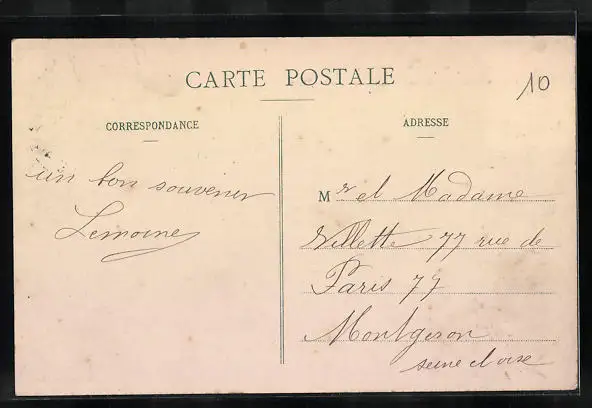 CARTE POSTALE
10
CORRESPONDANCE
un bon souvenir
Lemoine
ADRESSE
Mr et Madame
Villette 77 rue de
Paris 77
Montgeron
seine et oise